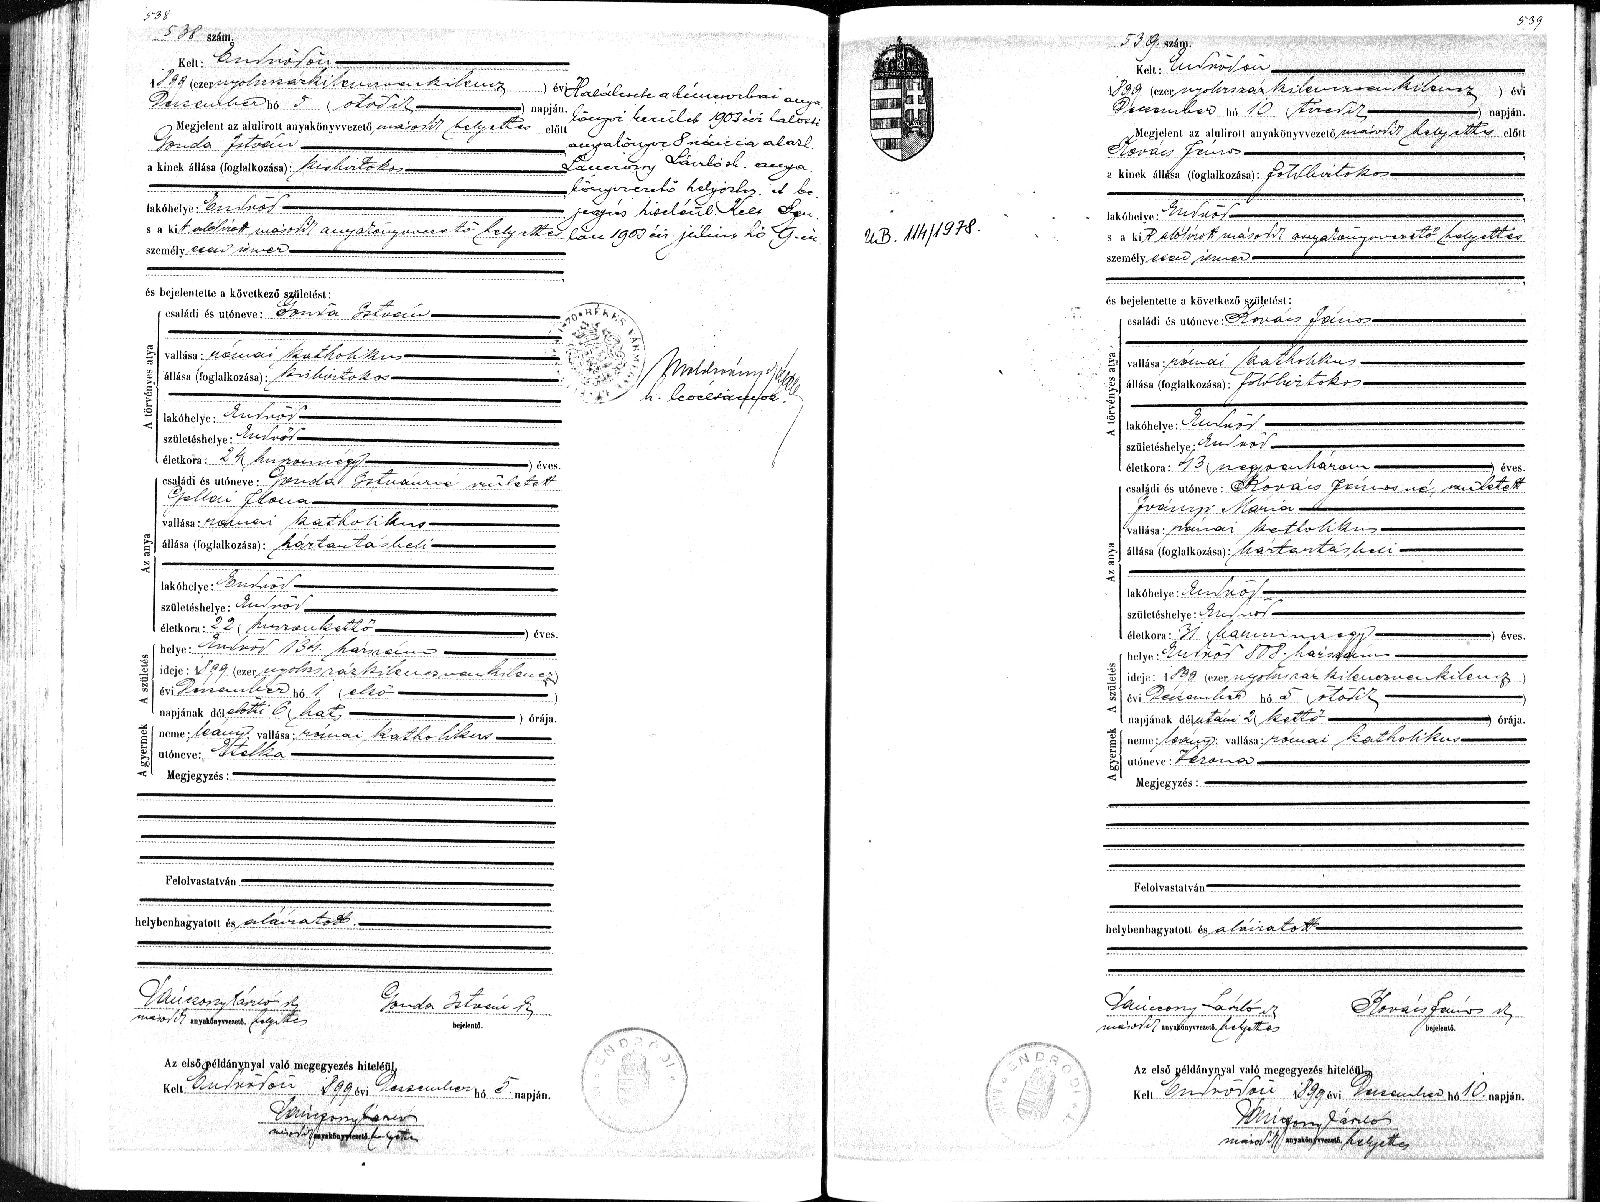 538
538 szám.
Kelt: Endrődön
1899 (ezernyolczszázkilenczvenkilencz) évi
Deczember hó 5 (ötödik) napján.
Megjelent az alulirott anyakönyvvezető második helyettes előtt
Gonda István
a kinek állása (foglalkozása): kisbirtokos
lakóhelye: Endrőd
s a kit alólírott második anyakönyvvezető helyettes
személyesen ismer
és bejelentette a következő születést:
A törvényes atya
családi és utóneve: Gonda István
vallása: római katholikus
állása (foglalkozása): kisbirtokos
lakóhelye: Endrőd
születéshelye: Endrőd
életkora: 24 (huszonnégy) éves.
Az anya
családi és utóneve: Gonda Istvánné született
Gellai Ilona
vallása: római katholikus
állása (foglalkozása): háztartásbeli
lakóhelye: Endrőd
születéshelye: Endrőd
életkora: 22 (huszonkettő) éves.
A születés
helye: Endrőd 134. házszám
ideje: 1899 (ezernyolczszázkilenczvenkilencz)
évi Deczember hó 1 (első)
napjának délelőtti 6 (hat) órája.
A gyermek
neme: leány; vallása: római katholikus
utóneve: Etelka
Megjegyzés:
Felolvastatván
helybenhagyatott és aláiratott.
második anyakönyvvezető helyettes
Gonda István
bejelentő.
Az első példánynyal való megegyezés hiteléül,
Kelt Endrődön 1899 évi Deczember hó 5 napján.
második anyakönyvvezető helyettes
ENDRŐDI
könyvi kerület 1903 évi halotti
anyakönyv 8 alatt.
László anya
könyvvezető helyettes. A be
jegyzés hiteléül Kelt
1903 évi július hó 9-én
BÉKÉS VÁRM
UB. 114/1978.
539
539 szám.
Kelt: Endrődön
1899 (ezernyolczszázkilenczvenkilencz) évi
Deczember hó 10 (tizedik) napján.
Megjelent az alulirott anyakönyvvezető második helyettes előtt
Kovács János
a kinek állása (foglalkozása): földbirtokos
lakóhelye: Endrőd
s a kit alólírott második anyakönyvvezető helyettes
személyesen ismer
és bejelentette a következő születést:
A törvényes atya
családi és utóneve: Kovács János
vallása: római katholikus
állása (foglalkozása): földbirtokos
lakóhelye: Endrőd
születéshelye: Endrőd
életkora: 43 (negyvenhárom) éves.
Az anya
családi és utóneve: Kovács Jánosné, született
Iványi Mária
vallása: római katholikus
állása (foglalkozása): háztartásbeli
lakóhelye: Endrőd
születéshelye: Endrőd
életkora: 31 (harminczegy) éves.
A születés
helye: Endrőd 808. házszám
ideje: 1899 (ezernyolczszázkilenczvenkilencz)
évi Deczember hó 5 (ötödik)
napjának délutáni 2 (kettő) órája.
A gyermek
neme: leány; vallása: római katholikus
utóneve: Verona
Megjegyzés:
Felolvastatván
helybenhagyatott és aláiratott
László
második anyakönyvvezető helyettes
Kovács János
bejelentő.
Az első példánynyal való megegyezés hiteléül,
Kelt Endrődön 1899 évi Deczember hó 10. napján.
László
második anyakönyvvezető helyettes
ENDRŐDI